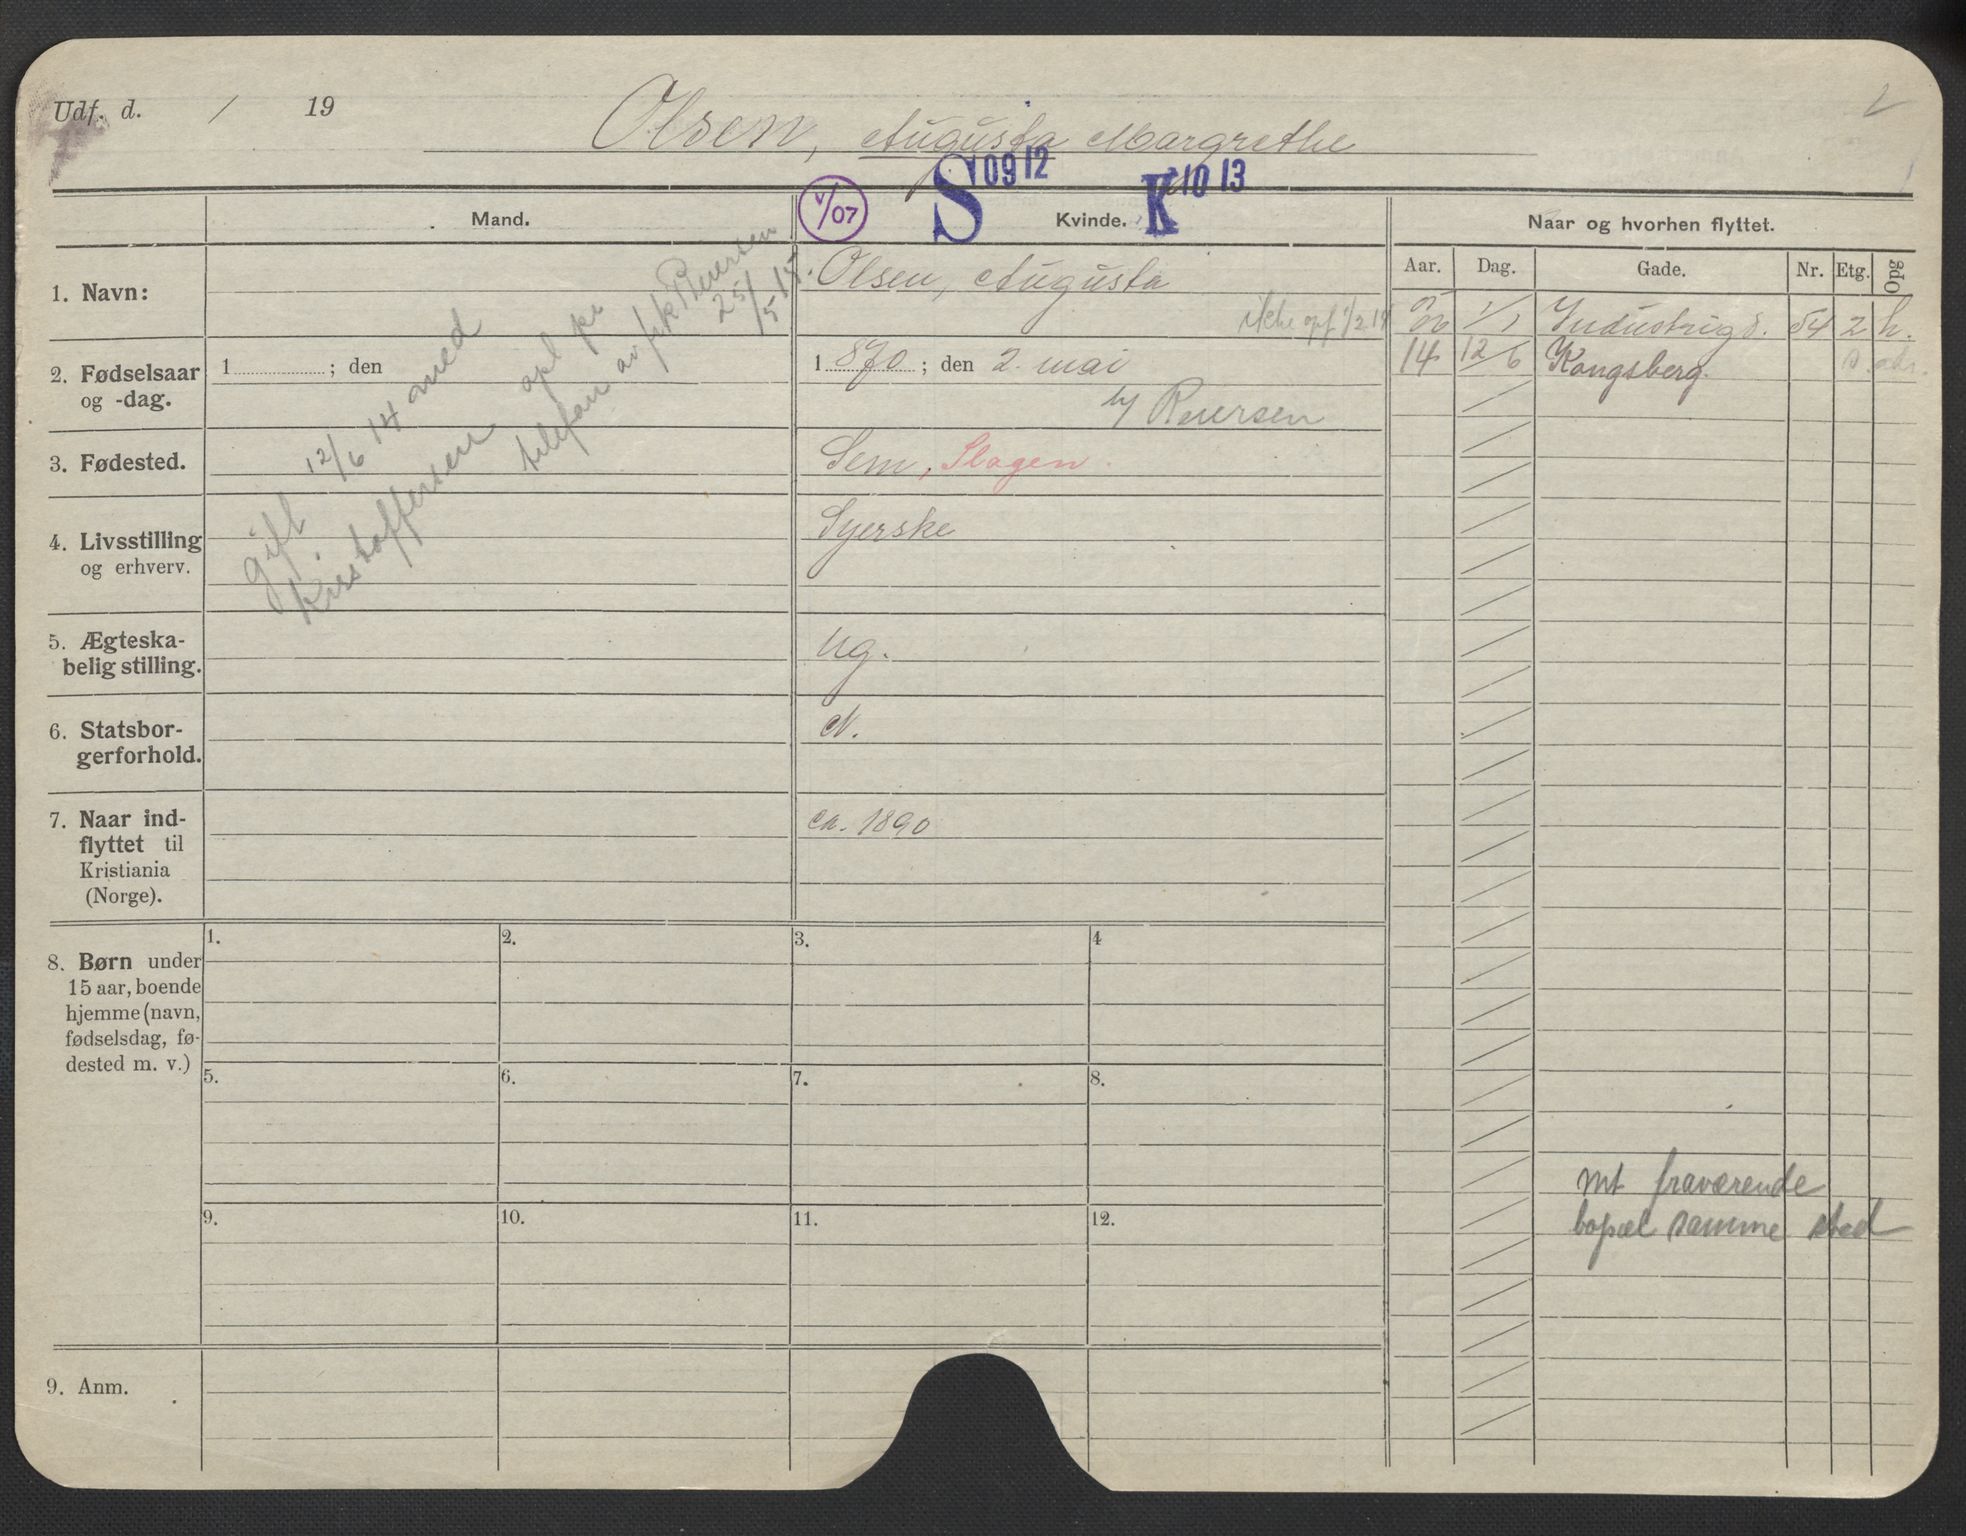 Udf. d. / 19
Olsen, Augusta Margrethe
2
Mand.
V/07
S 09 12
Kvinde.
K 10 13
Naar og hvorhen flyttet.
Aar. Dag. Gade. Nr. Etg. Opg
1. Navn:
Olsen, Augusta
ikke opf 1/2 14
06 1/1 Industrig d. 54 2 h.
14 12/6 Kongsberg.
2. Fødselsaar og -dag.
1 ; den
1 870 ; den 2. mai
Reiersen
3. Fødested.
Sem, Slagen.
4. Livsstilling og erhverv.
Syerske
5. Ægteska-
belig stilling.
ug.
6. Statsbor-
gerforhold.
N.
7. Naar ind-
flyttet til
Kristiania
(Norge).
ca. 1890
gift 12/6 14 med
Kristoffersen opl pr
telefon av frk Reiersen
25/5 15
8. Børn under
15 aar, boende
hjemme (navn,
fødselsdag, fø-
dested m. v.)
1. 2. 3. 4
5. 6. 7. 8.
9. 10. 11. 12.
mt fraværende
bopæl samme sted
9. Anm.